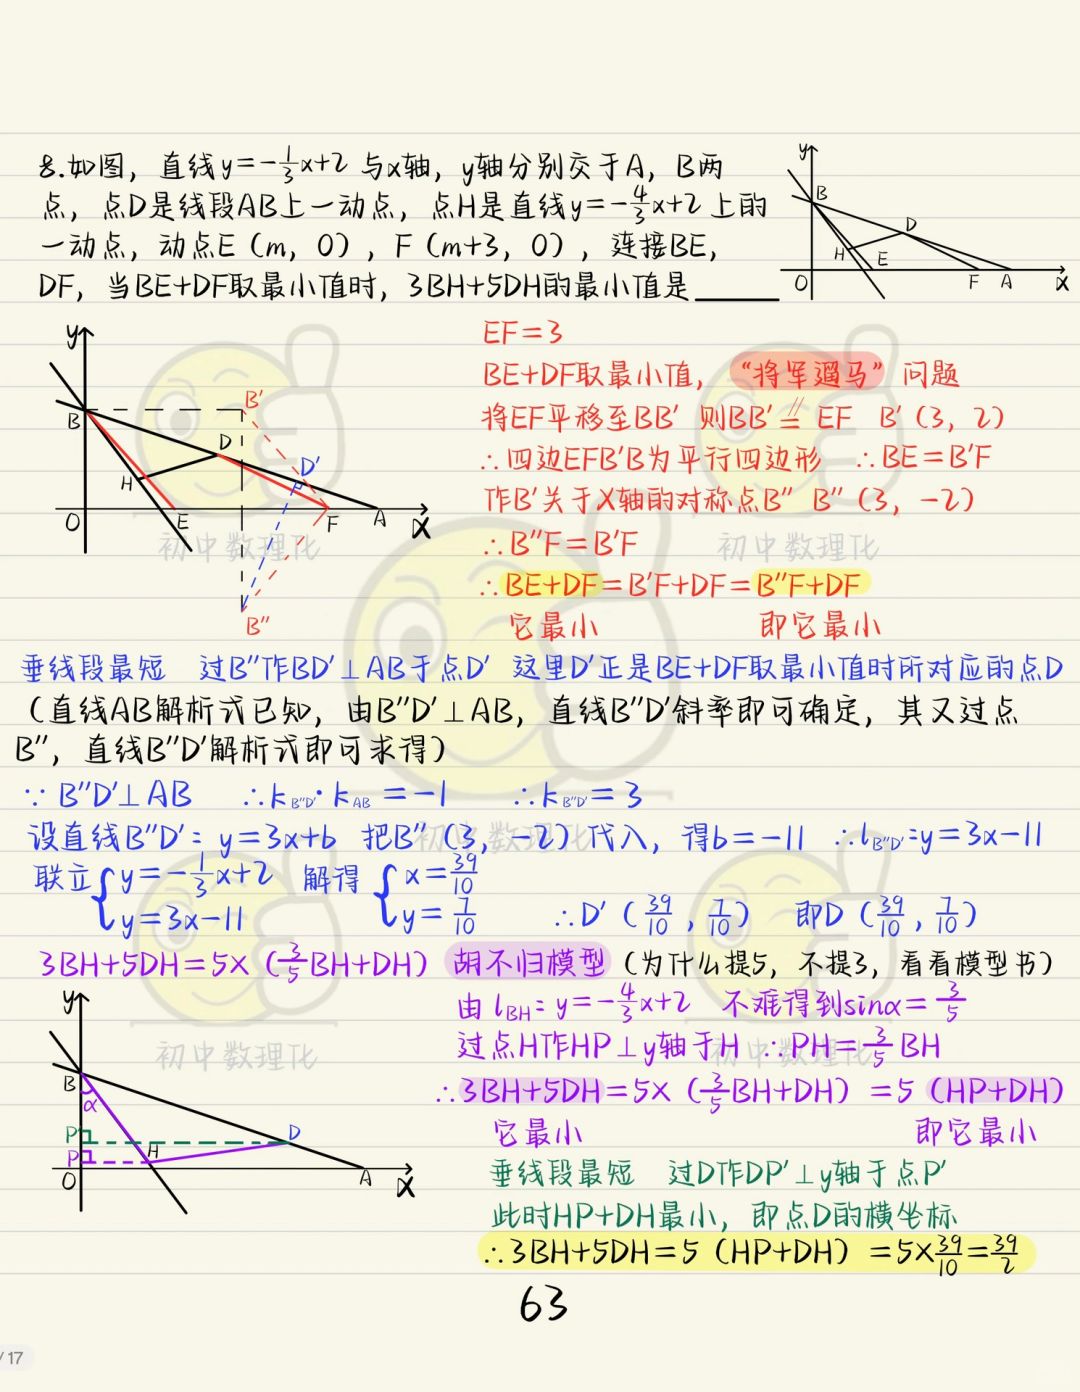 8.如图，直线y=-1/3x+2与x轴，y轴分别交于A，B两
点，点D是线段AB上一动点，点H是直线y=-4/3x+2上的
一动点，动点E（m，0），F（m+3，0），连接BE，
DF，当BE+DF取最小值时，3BH+5DH的最小值是______
y
B
D
H
E
O
F
A
x
EF=3
BE+DF取最小值，“将军遛马”问题
将EF平移至BB′ 则BB′∥=EF B′（3，2）
∴四边形EFB′B为平行四边形 ∴BE=B′F
作B′关于X轴的对称点B″ B″（3，-2）
∴B″F=B′F
∴BE+DF=B′F+DF=B″F+DF
它最小 即它最小
y
B
B′
D
D′
H
O
E
F
A
x
B″
初中数理化
初中数理化
垂线段最短 过B″作BD′⊥AB于点D′ 这里D′正是BE+DF取最小值时所对应的点D
（直线AB解析式已知，由B″D′⊥AB，直线B″D′斜率即可确定，其又过点
B″，直线B″D′解析式即可求得）
∵B″D′⊥AB ∴k B″D′·k AB=-1 ∴k B″D′=3
设直线B″D′：y=3x+b 把B″（3，-2）代入，得b=-11 ∴l B″D′:y=3x-11
初中数理化
联立{y=-1/3x+2 解得{x=39/10
y=3x-11 y=7/10 ∴D′（39/10，7/10） 即D（39/10，7/10）
3BH+5DH=5×（3/5BH+DH）胡不归模型（为什么提5，不提3，看看模型书）
由l BH：y=-4/3x+2 不难得到sinα=3/5
过点H作HP⊥y轴于H ∴PH=3/5BH
初中数理化
初中数理化
∴3BH+5DH=5×（3/5BH+DH）=5（HP+DH）
它最小 即它最小
y
B
α
P′
P
H
D
O
A
x
垂线段最短 过D作DP′⊥y轴于点P′
此时HP+DH最小，即点D的横坐标
∴3BH+5DH=5（HP+DH）=5×39/10=39/2
63
/17